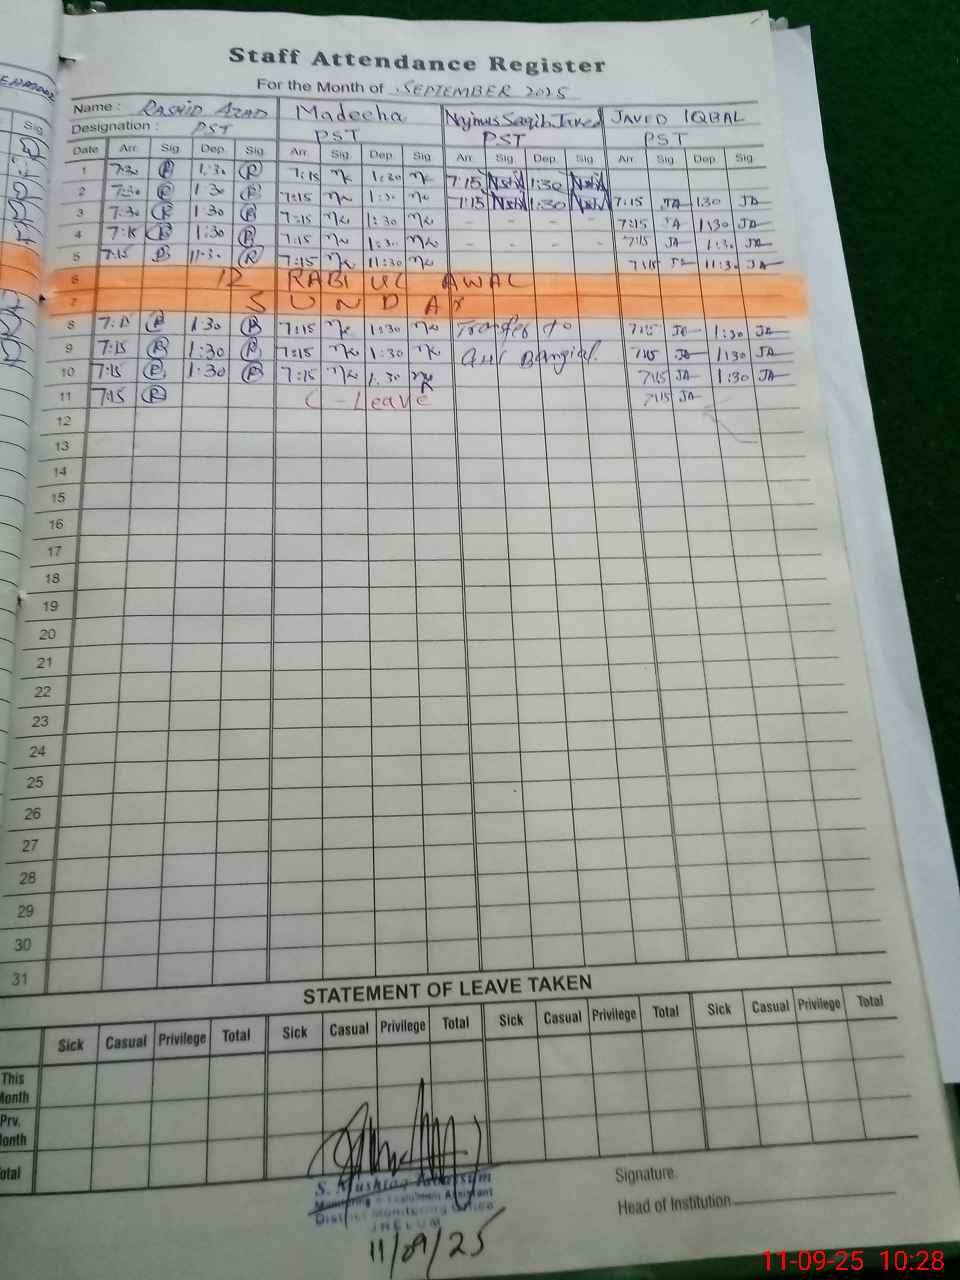 Staff Attendance Register
For the Month of SEPTEMBER 2025
Name : RASHID AZAD Madeeha Najmus Saqib Javed JAVED IQBAL
Designation : PST PST PST PST
Date Arr. Sig. Dep. Sig. Arr. Sig. Dep. Sig. Arr. Sig. Dep. Sig. Arr. Sig. Dep. Sig.
1 7:30 R 1:30 R 7:15 1:30 7:15 1:30
2 7:30 R 1:30 R 7:15 1:30 7:15 1:30 7:15 JA 1:30 JA
3 7:30 R 1:30 R 7:15 1:30 - - - - 7:15 JA 1:30 JA
4 7:15 R 1:30 R 7:15 1:30 - - - - 7:15 JA 1:30 JA
5 7:15 R 11:30 R 7:15 11:30 7:15 JA 11:30 JA
6 12 RABI UL AWAL
7 S U N D A Y
8 7:15 R 1:30 R 7:15 1:30 Transfer to 7:15 JA 1:30 JA
9 7:15 R 1:30 R 7:15 1:30 7:15 JA 1:30 JA
10 7:15 R 1:30 R 7:15 1:30 7:15 JA 1:30 JA
11 7:15 R C-Leave 7:15 JA
12
13
14
15
16
17
18
19
20
21
22
23
24
25
26
27
28
29
30
31
STATEMENT OF LEAVE TAKEN
Sick Casual Privilege Total Sick Casual Privilege Total Sick Casual Privilege Total Sick Casual Privilege Total
This Month
Prv.
Total
Signature.
Head of Institution
Monitoring Evaluation Assistant
District Monitoring Office
JHELUM
11/09/25
11-09-25 10:28